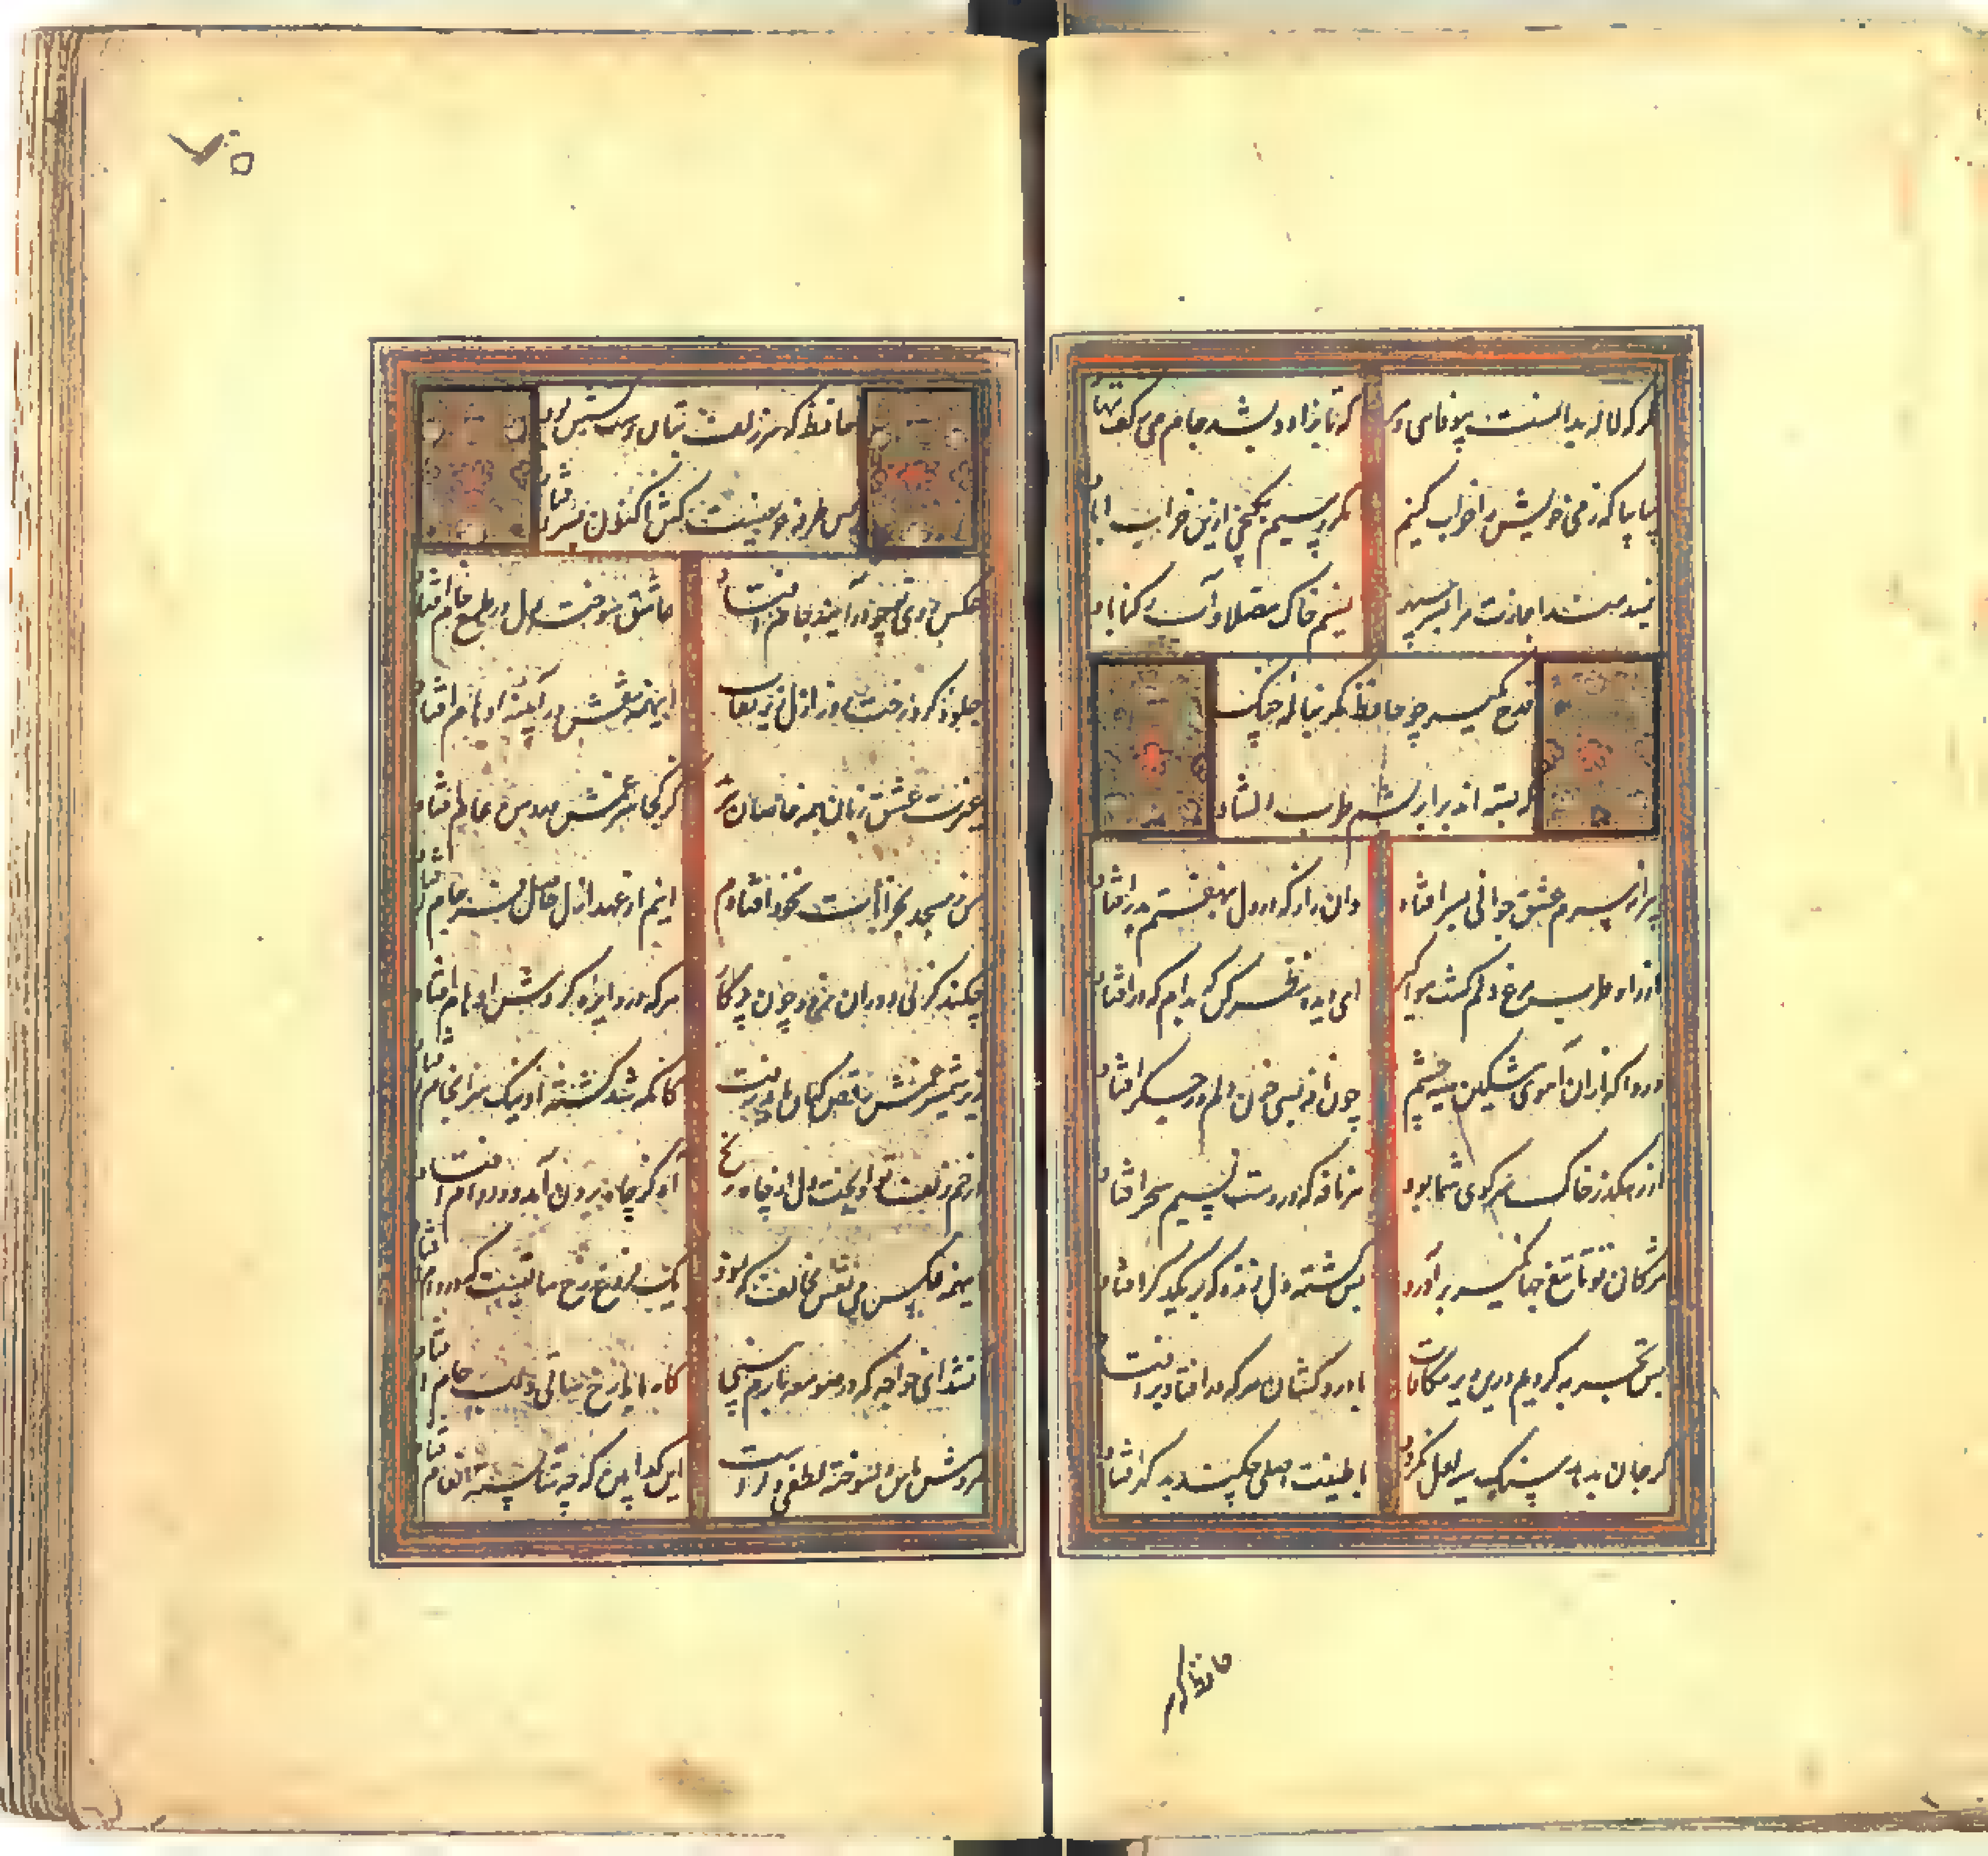 مگر که لاله بدانست بیوفایی دهر
که تا بزاد و بشد جام می ز کف ننهاد
بیا بیا که ز می خویش را خراب کنیم
مگر رسیم بگنجی ازین خراب اباد
نمیدهند اجازت مرا بسیر سفر
نسیم خاک مصلا و آب رکناباد
قدح مگیر چو حافظ مگر بناله چنگ
که بسته اند بر ابریشم طرب دل شاد
پیرانه سرم عشق جوانی بسر افتاد
وان راز که در دل بنهفتم بدر افتاد
از راه نظر مرغ دلم گشت هوا گیر
ای دیده نظر کن که بدام که در افتاد
دردا که ازان آهوی مشکین سیه چشم
چون نافه بسی خون دلم در جگر افتاد
از رهگذر خاک سر کوی شما بود
هر نافه که در دست نسیم سحر افتاد
مژگان تو تا تیغ جهانگیر برآورد
بس کشته دل زنده که بر یکدگر افتاد
بس تجربه کردیم درین دیر مکافات
با دردکشان هر که در افتاد بر افتاد
گر جان بدهد سنگ سیه لعل نگردد
با طینت اصلی چکند بد گهر افتاد
حافظ که
۷۵
حافظ که سر زلف بتان دست کشش بود
بس طرفه حریفیست کش اکنون بسر افتاد
عکس روی تو چو در آینه جام افتاد
عاشق سوخته دل در طمع خام افتاد
جلوهٔ کرد رخت روز ازل زیر نقاب
اینهمه نقش در آیینه اوهام افتاد
غیرت عشق زبان همه خاصان ببرید
کز کجا سر غمش در دهن عام افتاد
من ز مسجد بخرابات نه خود افتادم
اینم از عهد ازل حاصل فرجام افتاد
چکند کز پی دوران نرود چون پرگار
هر که در دایره گردش ایام افتاد
زیر شمشیر غمش رقص کنان باید رفت
کانکه شد کشته او نیک سرانجام افتاد
در خم زلف تو آویخت دل از چاه زنخ
آه کز چاه برون آمد و در دام افتاد
اینهمه عکس می و نقش مخالف که نمود
یک فروغ رخ ساقیست که در جام افتاد
نشد ای خواجه که در صومعه بازم بینی
کار ما با رخ ساقی و لب جام افتاد
هر دمش با من دلسوخته لطفی دگر است
این گدا بین که چه شایسته انعام افتاد